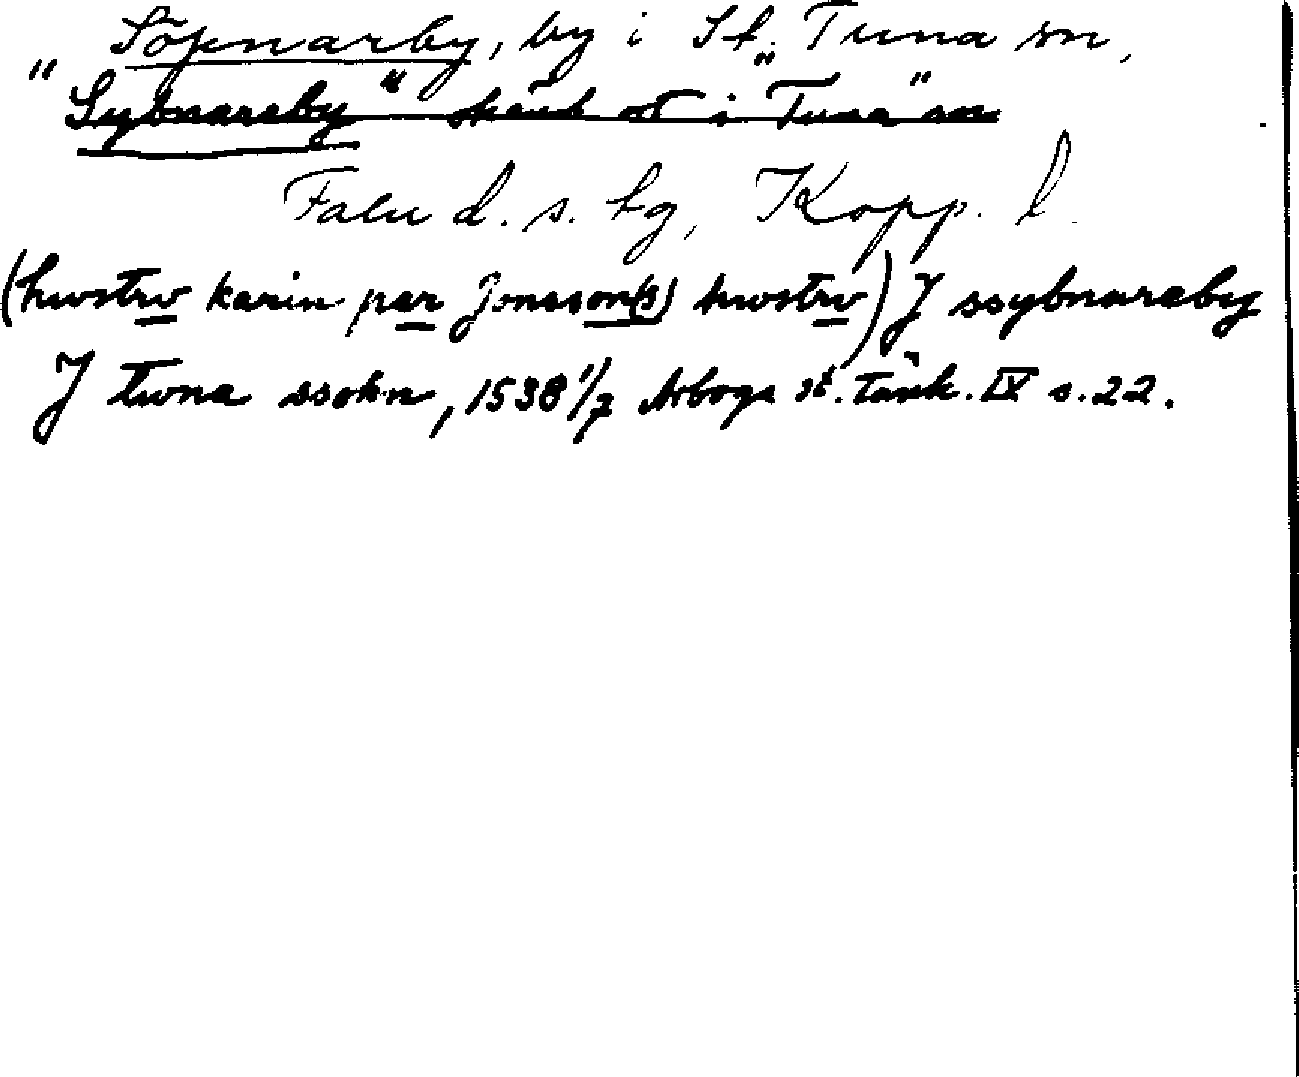 Söpnarby, by i St. Tuna sn,
"Sybnareby" okänd ort i "Tuna" sn
Falu d. s. bg, Kopp. l.
(hwstrv karin per Jonsson(s) hwstrv) J ssybnareby
J twna ssokn, 1538 1/7 Arboga st. tänk. IV s. 22.